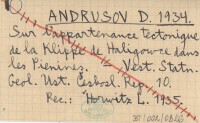 ANDRUSOV D. 1934.
Sur l'appartenance tectonique
de la Klippe de Haligowce dans
les Pienines. Vest. Statn.
Geol. Ust. Českosl. Rep. 10.
Rec.: Horwitz L. 1935.